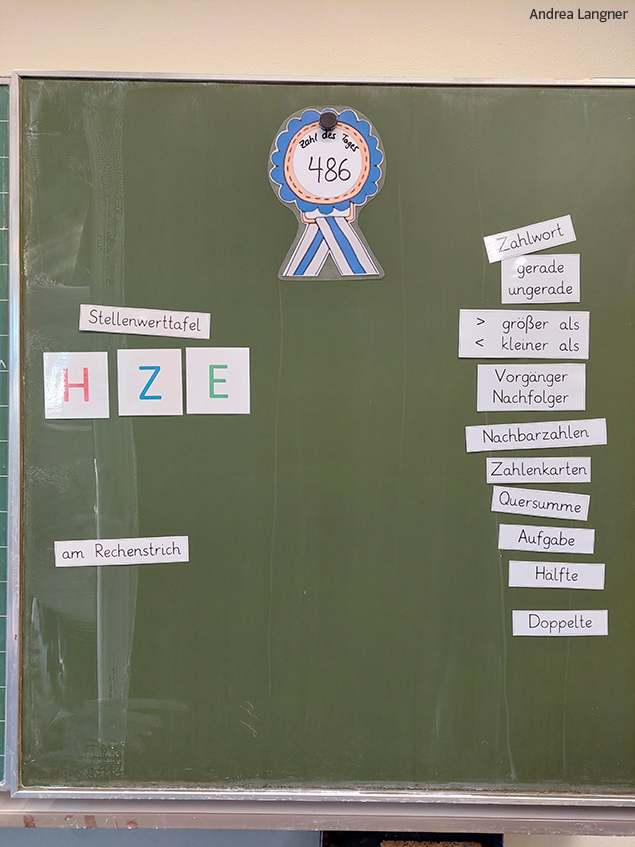 Andrea Langner
Zahl des Tages
486
Stellenwerttafel
H Z E
am Rechenstrich
Zahlwort
gerade
ungerade
> größer als
< kleiner als
Vorgänger
Nachfolger
Nachbarzahlen
Zahlenkarten
Quersumme
Aufgabe
Hälfte
Doppelte